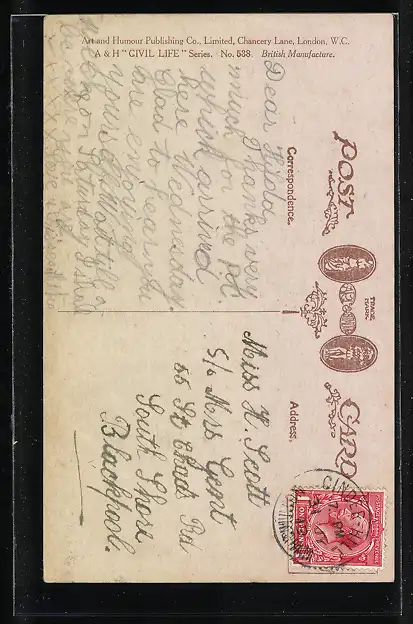 Art and Humour Publishing Co., Limited, Chancery Lane, London, W.C.
A & H "CIVIL LIFE" Series. No. 538. British Manufacture.
POST CARD
TRADE MARK
Correspondence.
Address.
Dear Hylda,
much Thanks very
for the P.C.
which arrived
here Wednesday.
Glad to hear you
are enjoying
yourself
on Saturday I shall
Miss H. Scott
C/o Mrs Gent
55 St Chads Rd
South Shore
Blackpool.
PM
ONE PENNY